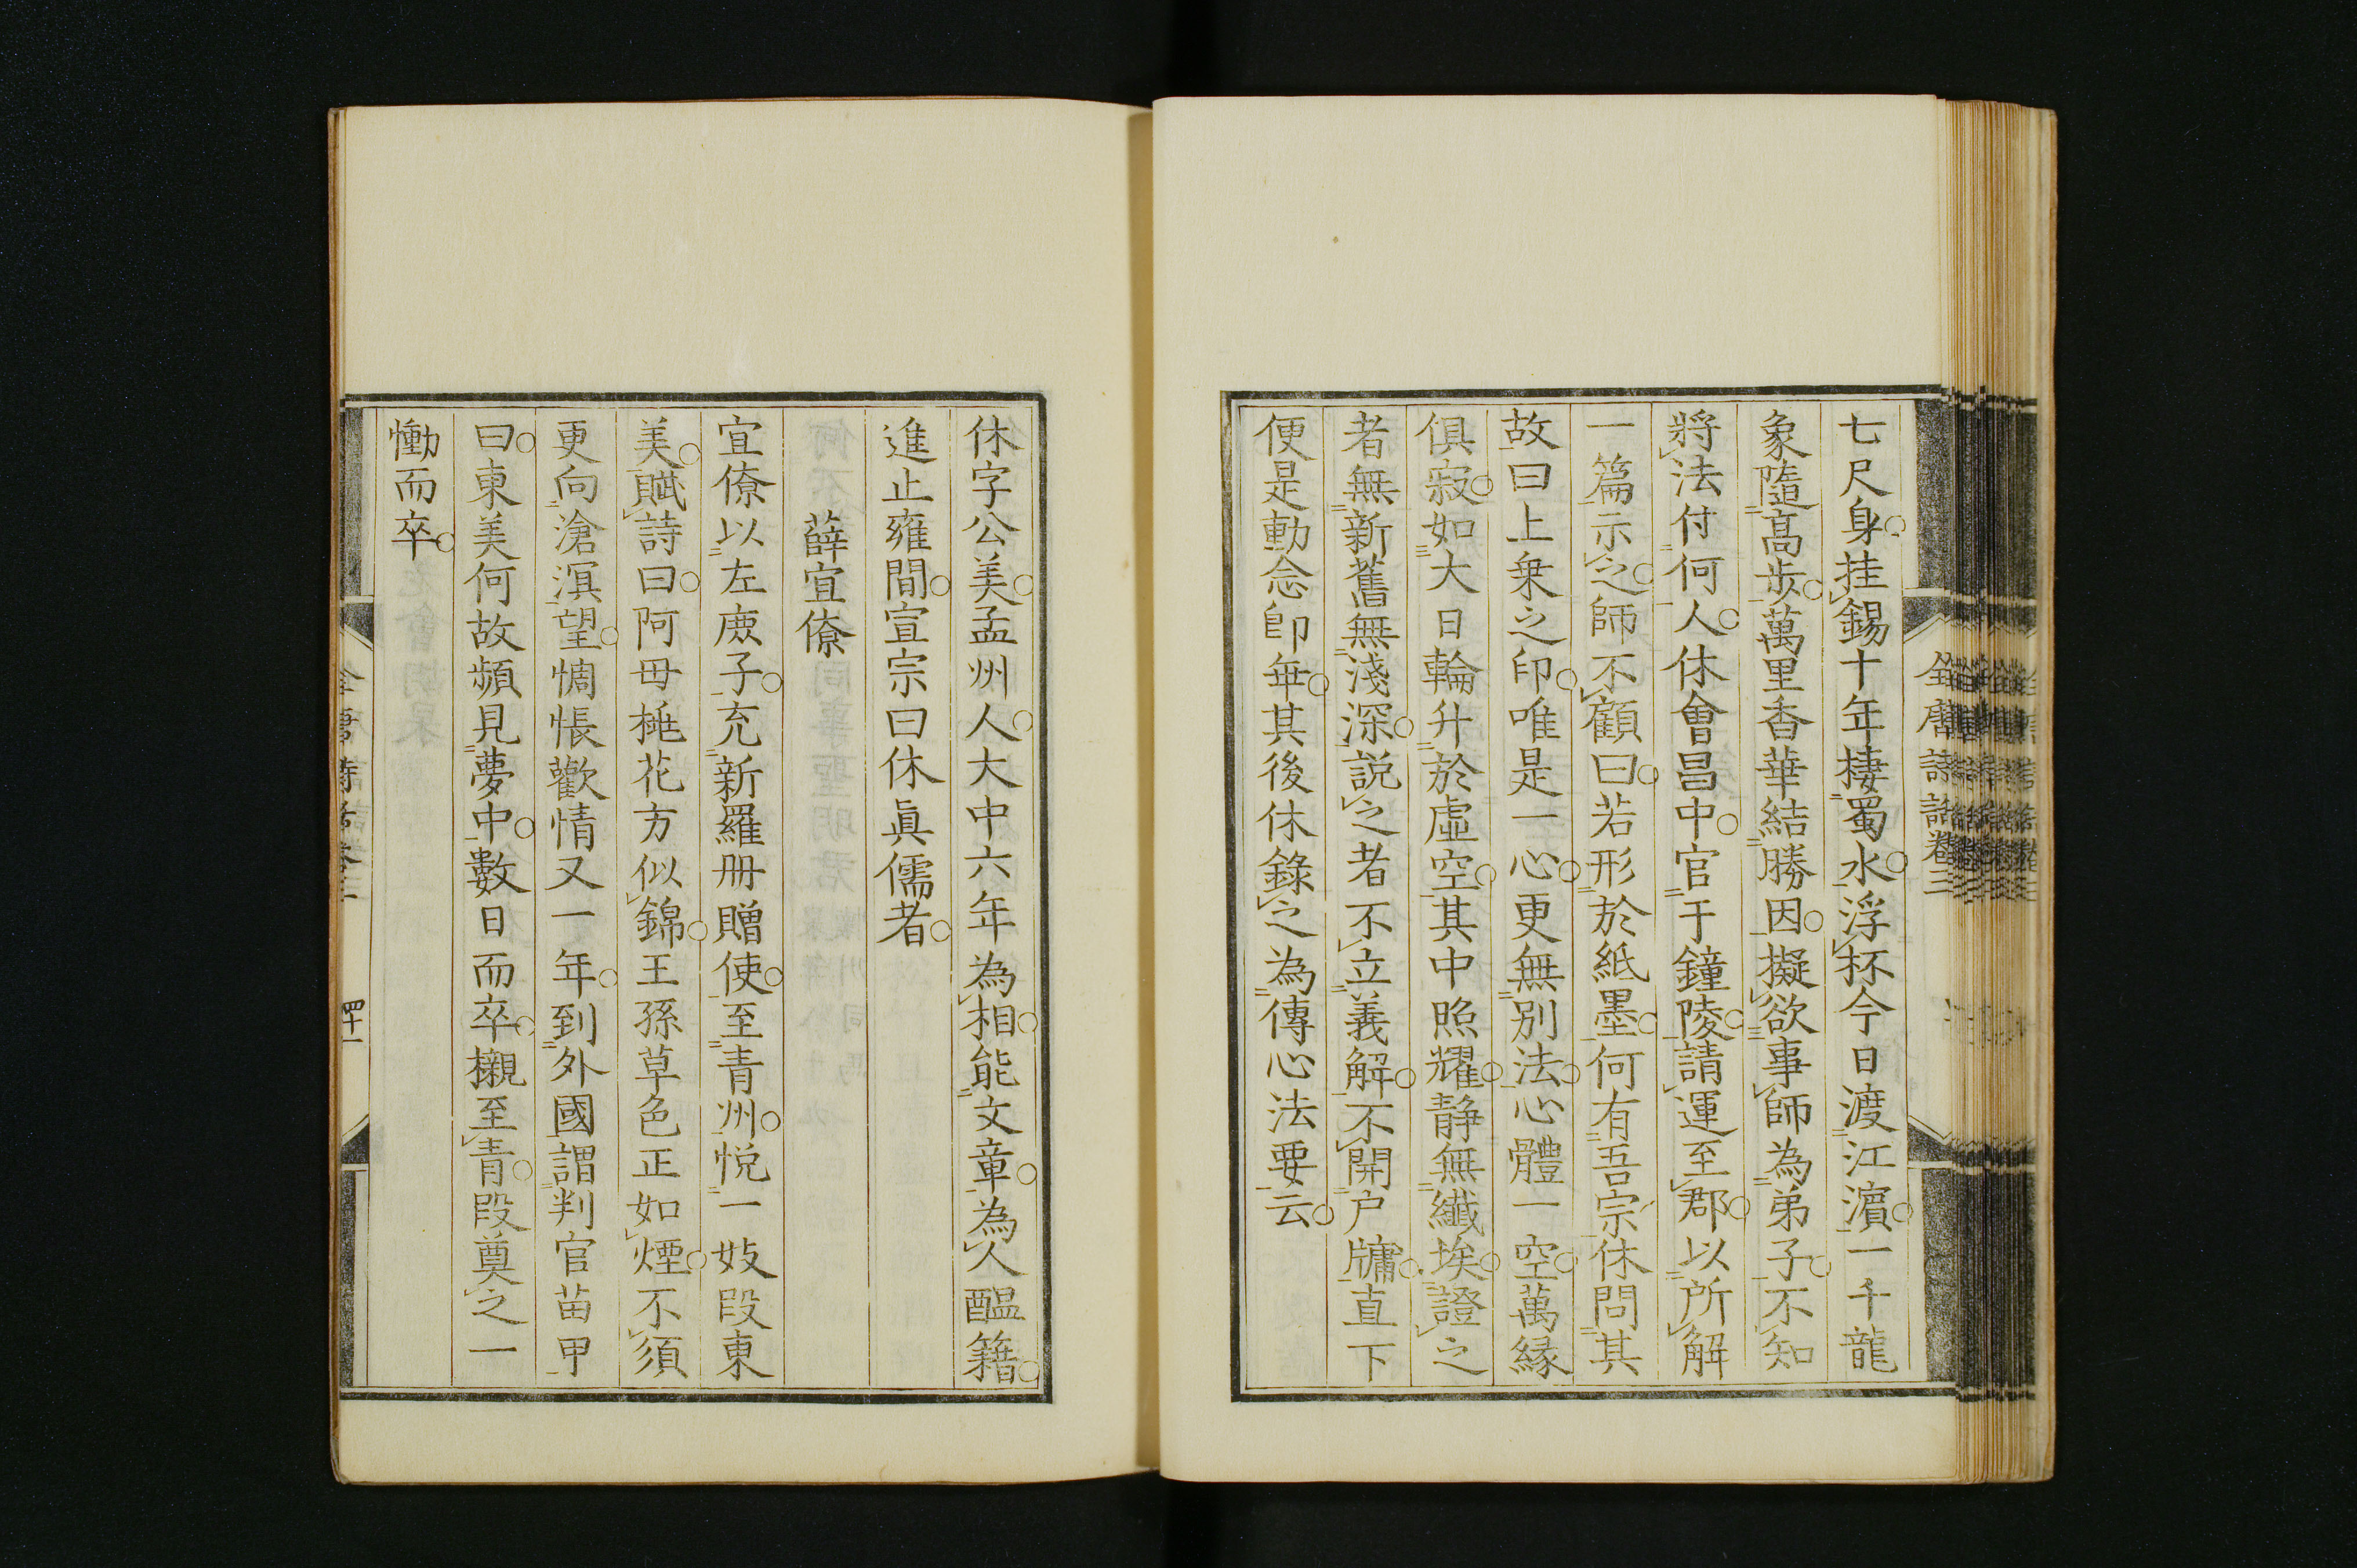 七尺身挂錫十年棲蜀水浮杯今日渡江濵一千龍
象隨髙歩萬里香華結勝因擬欲事師為弟子不知
將法付何人休會昌中官于鐘陵請運至郡以所解
一篇示之師不顧曰若形於紙墨何有吾宗休問其
故曰上乗之印唯是一心更無别法心體一空萬縁
俱寂如大日輪升於虛空其中照耀静無纖埃證之
者無新舊無淺深説之者不立義解不開户牖直下
便是動念卽乖其後休錄之為傳心法要云
全唐詩話卷三
休字公美孟州人大中六年為相能文章為人醞籍
進止雍間宣宗曰休眞儒者
薛宜僚
宜僚以左庻子充新羅册贈使至青州悦一妓段東
美賦詩曰阿毋桃花方似錦王孫草色正如煙不須
更向滄溟望惆悵歡情又一年到外國謂判官苗甲
曰東美何故頻見夢中數日而卒櫬至青段奠之一
慟而卒
全唐詩話卷三 四十一